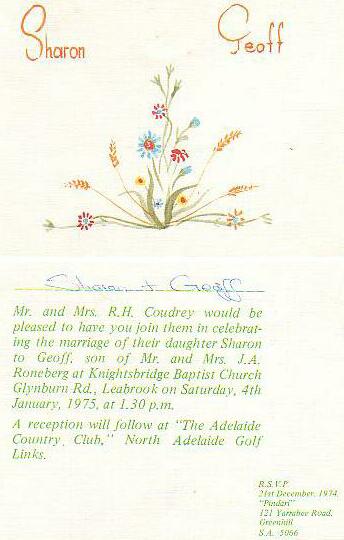 Sharon Geoff
Sharon + Geoff
Mr. and Mrs. R.H. Coudrey would be
pleased to have you join them in celebrat-
ing the marriage of their daughter Sharon
to Geoff, son of Mr. and Mrs. J.A.
Roneberg at Knightsbridge Baptist Church
Glynburn Rd., Leabrook on Saturday, 4th
January, 1975, at 1.30 p.m.
A reception will follow at "The Adelaide
Country Club," North Adelaide Golf
Links.
R.S.V.P
21st December, 1974,
"Pindari"
121 Yarrabee Road,
Greenhill
S.A. 5066